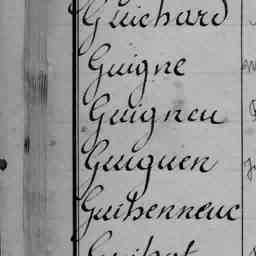 Guichard
Guigne
Guigneu
Guiguen
Guihenneuc
Guihot